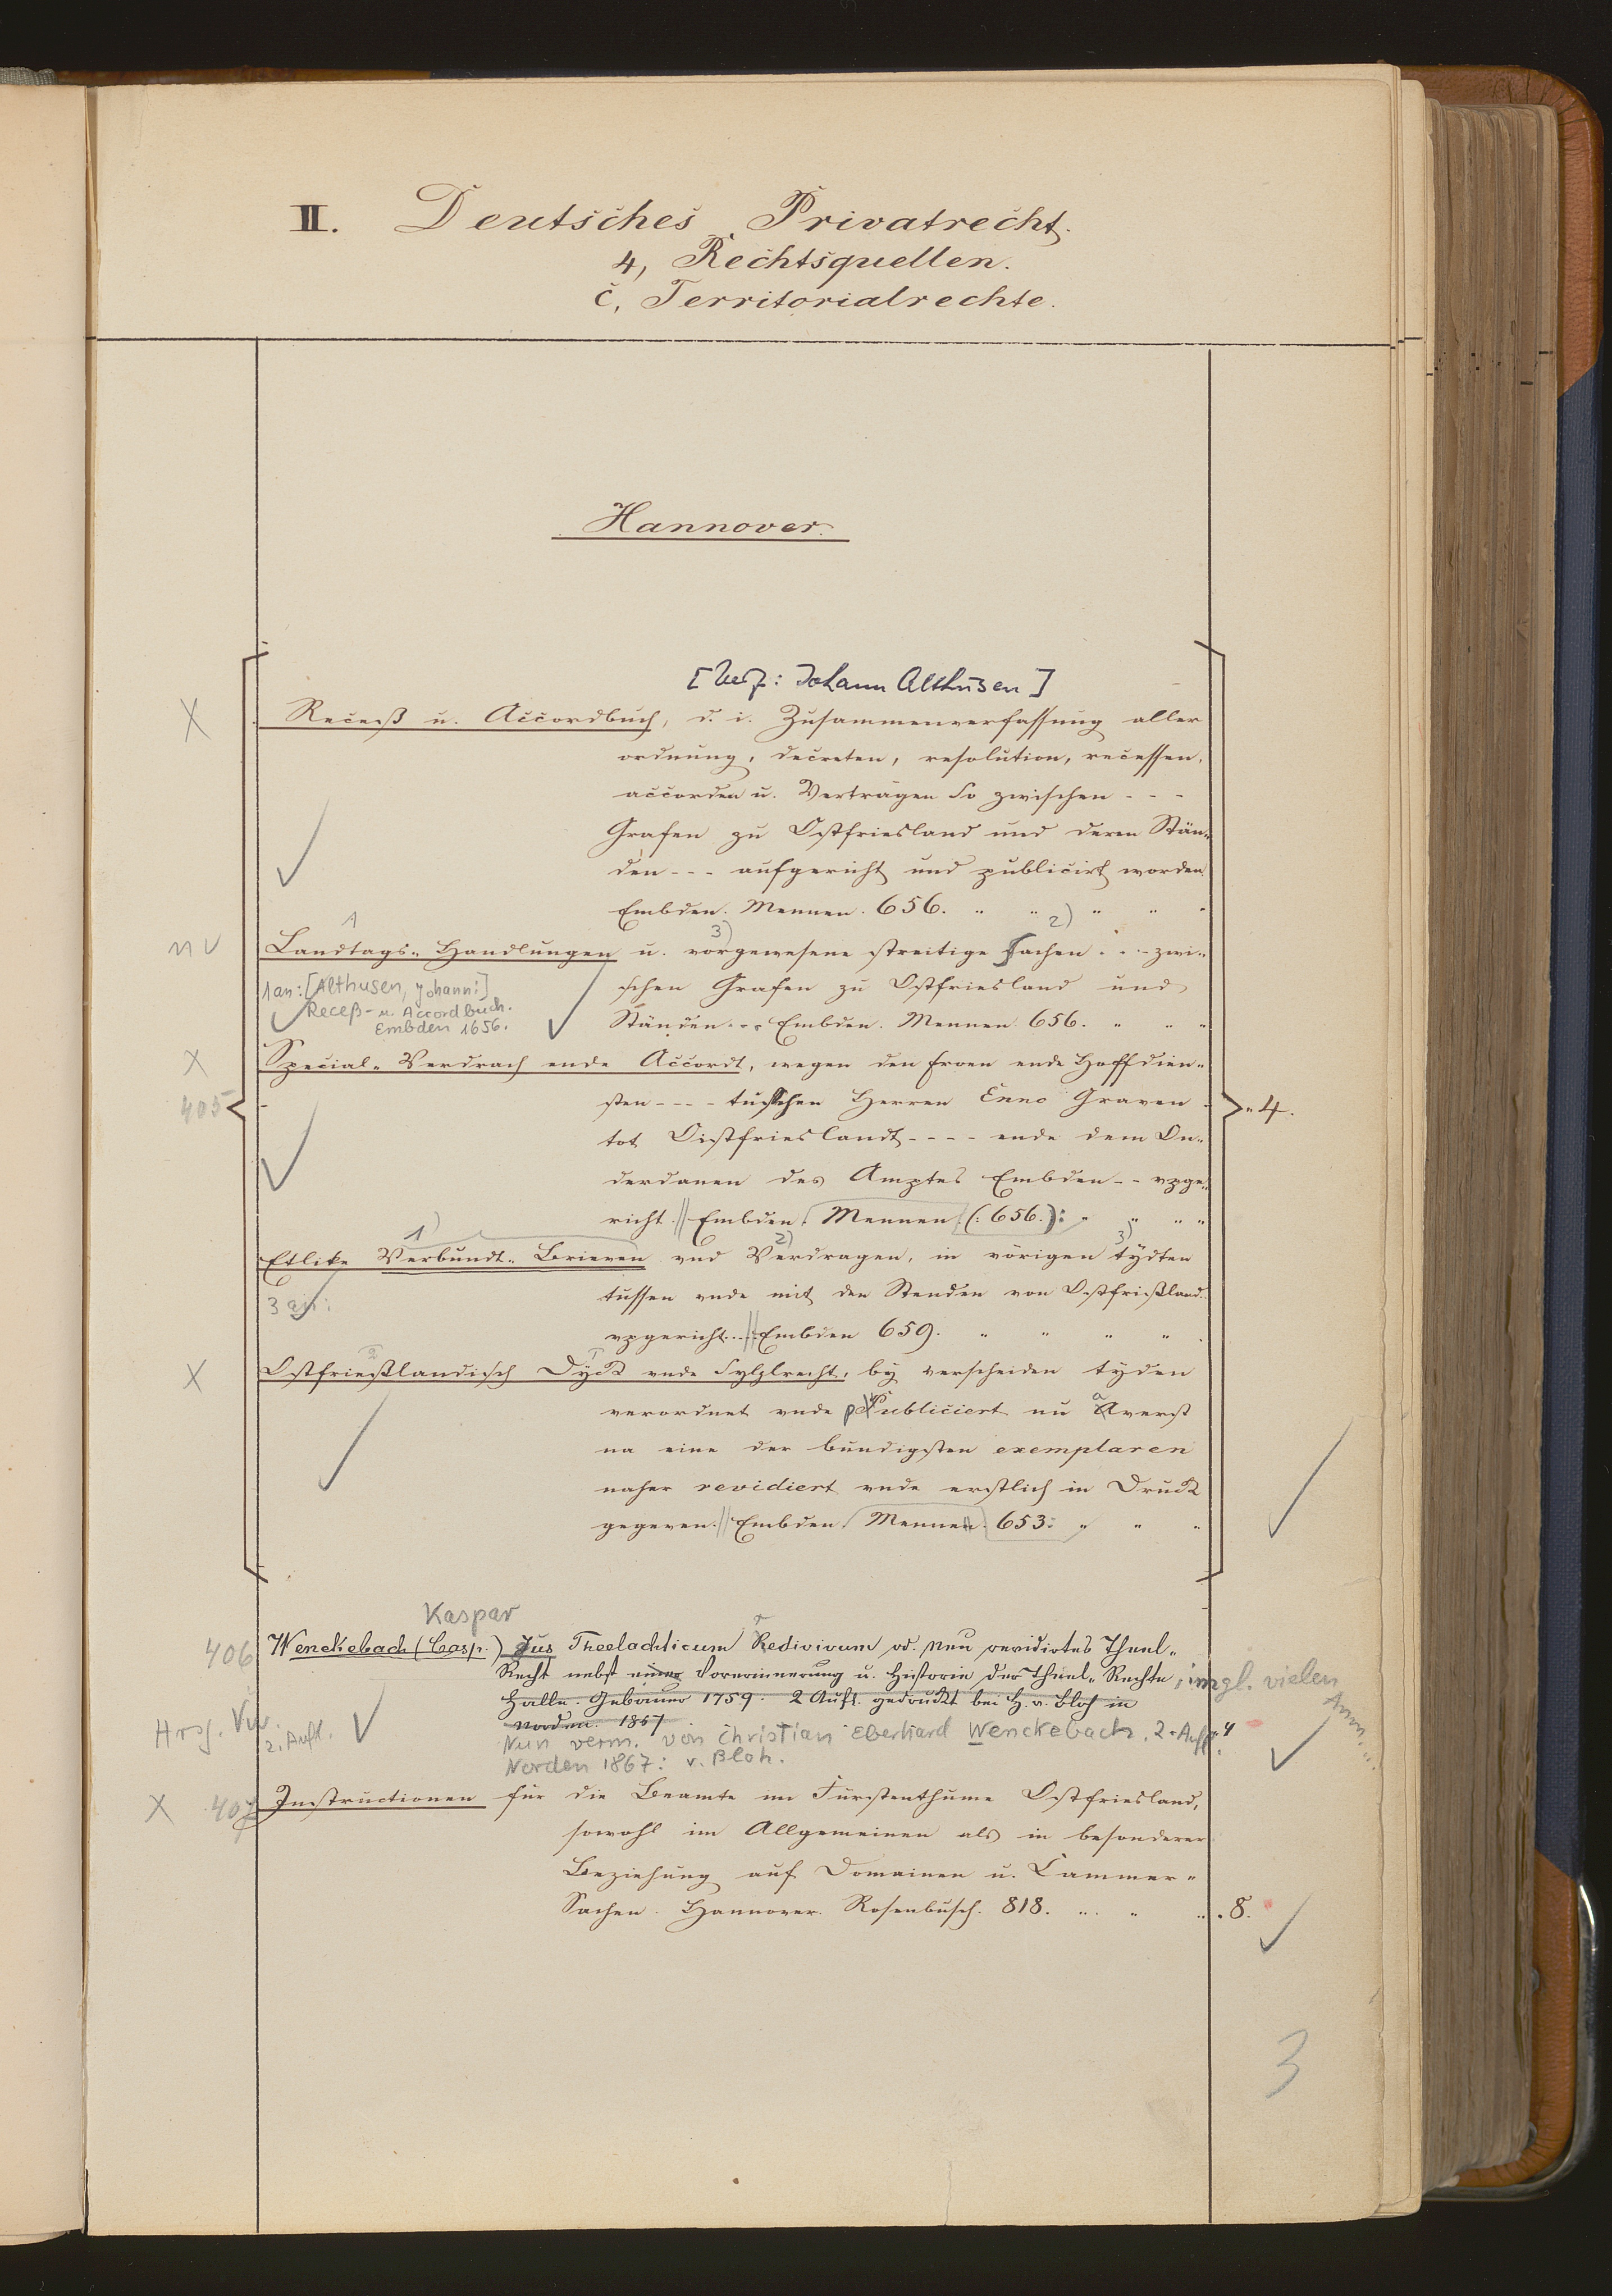 II. Deutsches Privatrecht.
4, Rechtsquellen.
c, Territorialrechte.
Hannover.
[Verf: Johann Althusen]
X Receß u. Accordbuch, d. i. Zusammenverfassung aller
ordnung, decreten, resolution, recessen,
accorden u. Verträgen so zwischen - - -
Grafen zu Ostfriesland und deren Stän-
den - - - aufgericht und publicirt worden.
Embden. Mennen. 656. " " " " "
1 3) 2)
n v Landtags- Handlungen u. vorgewesene streitige Sachen . . . zwi-
schen Grafen zu Ostfriesland und
Ständen . . . Embden. Mennen 656. " " "
1 an: [Althusen, Johann:]
Receß- u. Accordbuch.
Embden 1656.
X Special- Verdrach ende Accordt, wegen den froen ende Hoffdien-
405 sten - - - - tusschen Herren Enno Graven - " 4.
tot Oistfrieslandt - - - - ende dem On-
derdanen des Amptes Embden - - vpge-
richt. // Embden. Mennen (: 656.): " " " "
1) 2) 3)
Etlike Verbundt- Brieven vnd Verdragen, in vörigen tÿdten
3 an: tussen vnde mit den Stenden von Ostfrießland
vpgericht... // Embden 659. " " " "
2 1
X Ostfrießlandisch Dÿck vnde Sylzlrecht, by verscheiden tyden
verordnet vnde publiciert nu averst
na eine der bundigsten exemplaren
naher revidiert vnde erstlich in Druck
gegeven. // Embden Mennen. 653: " " "
Kaspar
406 Wenckebach (Casp.) Jus Theelachticum Redivivum od. neu revidirtes Theel-
Recht nebst einer Vorerinnerung u. Historie der Theel- Rechte, imgl. vielen
Anm...
Halle. Gebauer 1759. 2 Aufl. gedruckt bei H. v. Bloh in
Norden. 1867
Hrsg. Vw.
2. Aufl.
Nun verm. von Christian Eberhard Wenckebach. 2. Aufl. " 4
Norden 1867: v. Bloh.
X 407 Instructionen für die Beamte im Fürstenthume Ostfriesland,
sowohl im Allgemeinen als in besonderer
Beziehung auf Domainen u. Cammer-
Sachen. Hannover. Rosenbusch. 818. " " " 8.
3